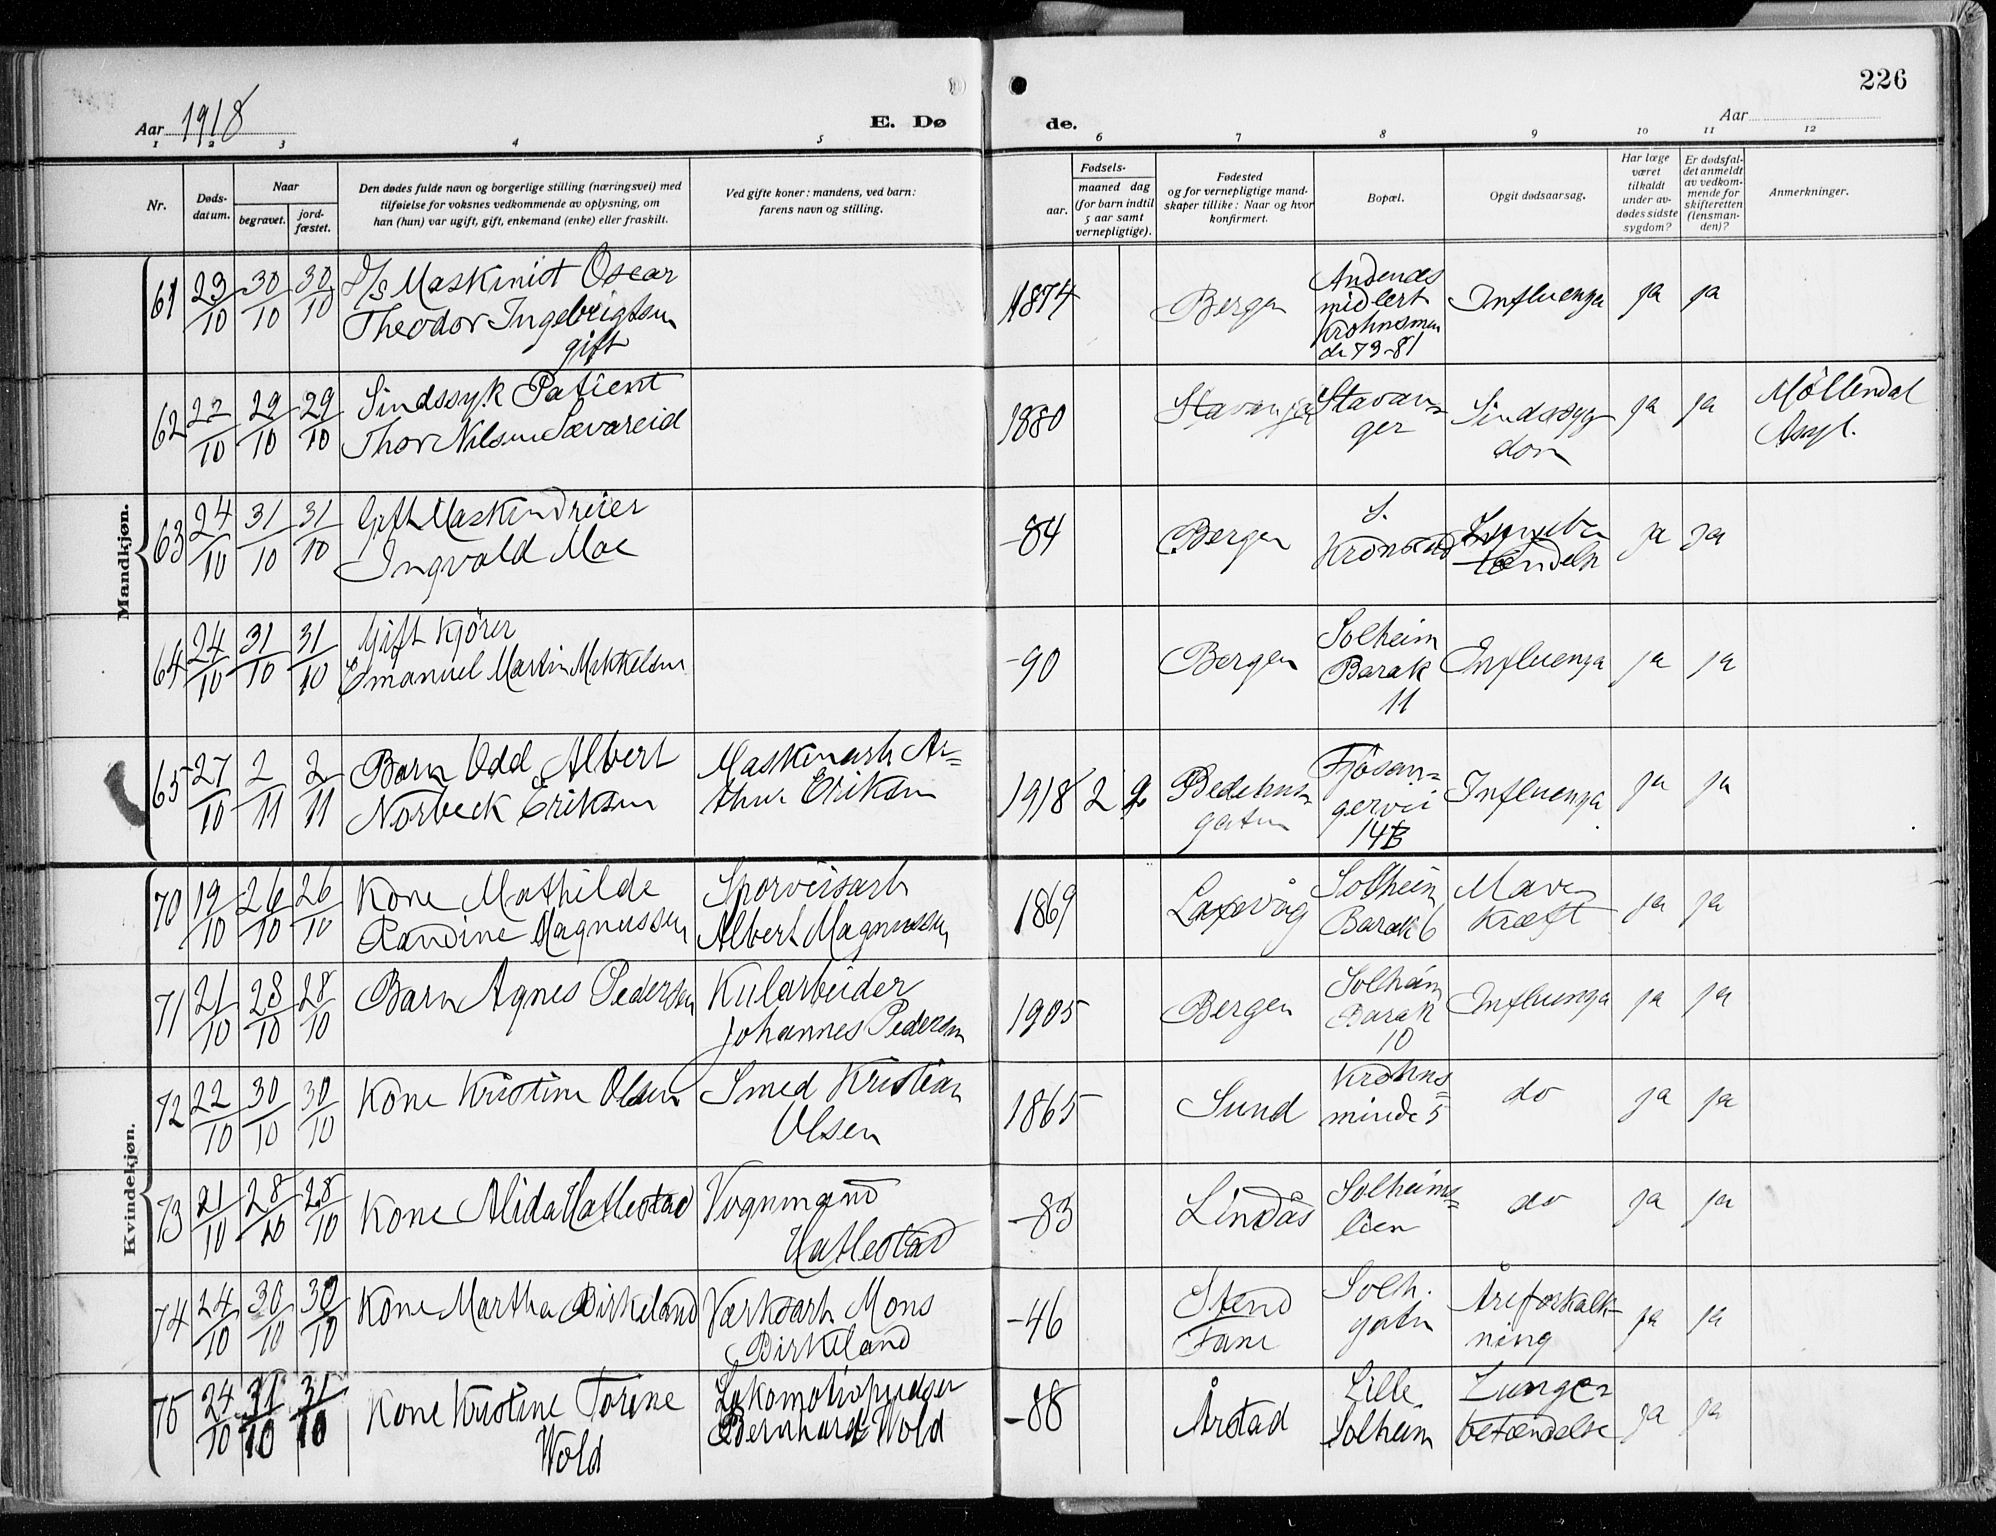 226
Aar 1918
E. Dø
de.
Aar
1 2 3 4 5 6 7 8 9 10 11 12
Nr.
Døds-
datum.
Naar
begravet.
jord-
fæstet.
Den dødes fulde navn og borgerlige stilling (næringsvei) med
tilføielse for voksnes vedkommende av oplysning, om
han (hun) var ugift, gift, enkemand (enke) eller fraskilt.
Ved gifte koner: mandens, ved barn:
farens navn og stilling.
Fødsels-
aar.
maaned dag
(for barn indtil
5 aar samt
vernepligtige).
Fødested
og for vernepligtige mand-
skaper tillike: Naar og hvor
konfirmert.
Bopæl.
Opgit dødsaarsag.
Har læge
været
tilkaldt
under av-
dødes sidste
sygdom?
Er dødsfal-
det anmeldt
av vedkom-
mende for
skifteretten
(lensman-
den)?
Anmerkninger.
Mandkjøn.
61 23/10 30/10 30/10
Maskinist Oscar
Theodor Ingebrigtsen
gift
1874
Bergen
Andenæs
midlert
Krohnsmin
de 73-81
Influenza
ja ja
62 22/10 29/10 29/10
Sindssyk Patient
Thor Nilsen Sævareid
1880
Stavanger
Stavan=
ger
Sindssyg
dom
ja ja
Møllendal
Asyl.
63 24/10 31/10 31/10
Gift Maskindreier
Ingvald Moe
-84
Bergen
S.
Kronstad
Lungebe
tændelse
ja ja
64 24/10 31/10 31/10
Gift Kjører
Emanuel Martin Mikkelsen
-90
Bergen
Solheim
Barak
11
Influenza
ja ja
65 27/10 2/11 2/11
Barn Odd Albert
Norbeck Eriksen
Maskinarb Ar=
thur Eriksen
1918 2 9
Bedehus
gaten
Fjösan=
gervei
14B
Influenza
ja ja
Kvindekjøn.
70 19/10 26/10 26/10
Kone Mathilde
Randine Magnussen
Sporveisarb
Albert Magnussen
1869
Laxevåg
Solheim
Barak 6
Mave
Kræft
ja ja
71 21/10 28/10 28/10
Barn Agnes Pedersen
Kularbeider
Johannes Pedersen
1905
Bergen
Solheim
Barak
10
Influenza
ja ja
72 22/10 30/10 30/10
Kone Kristine Olsen
Smed Kristian
Olsen
1865
Sund
Krohns=
minde 5
do
ja ja
73 21/10 28/10 28/10
Kone Alida Hatlestad
Vognmand
Hatlestad
-83
Lindås
Solheims=
lien
do
ja ja
74 24/10 30/10 30/10
Kone Martha Birkeland
Værksarb Mons
Birkeland
-46
Stend
Fane
Solh.
gaten
Åreforkalk-
ning
ja ja
75 24/10 31/10 31/10
Kone Kristine Torine
Wold
Lokomotivpudser
Bernhard Wold
-88
Årstad
Lille
Solheim
Lunge=
betændelse
ja ja